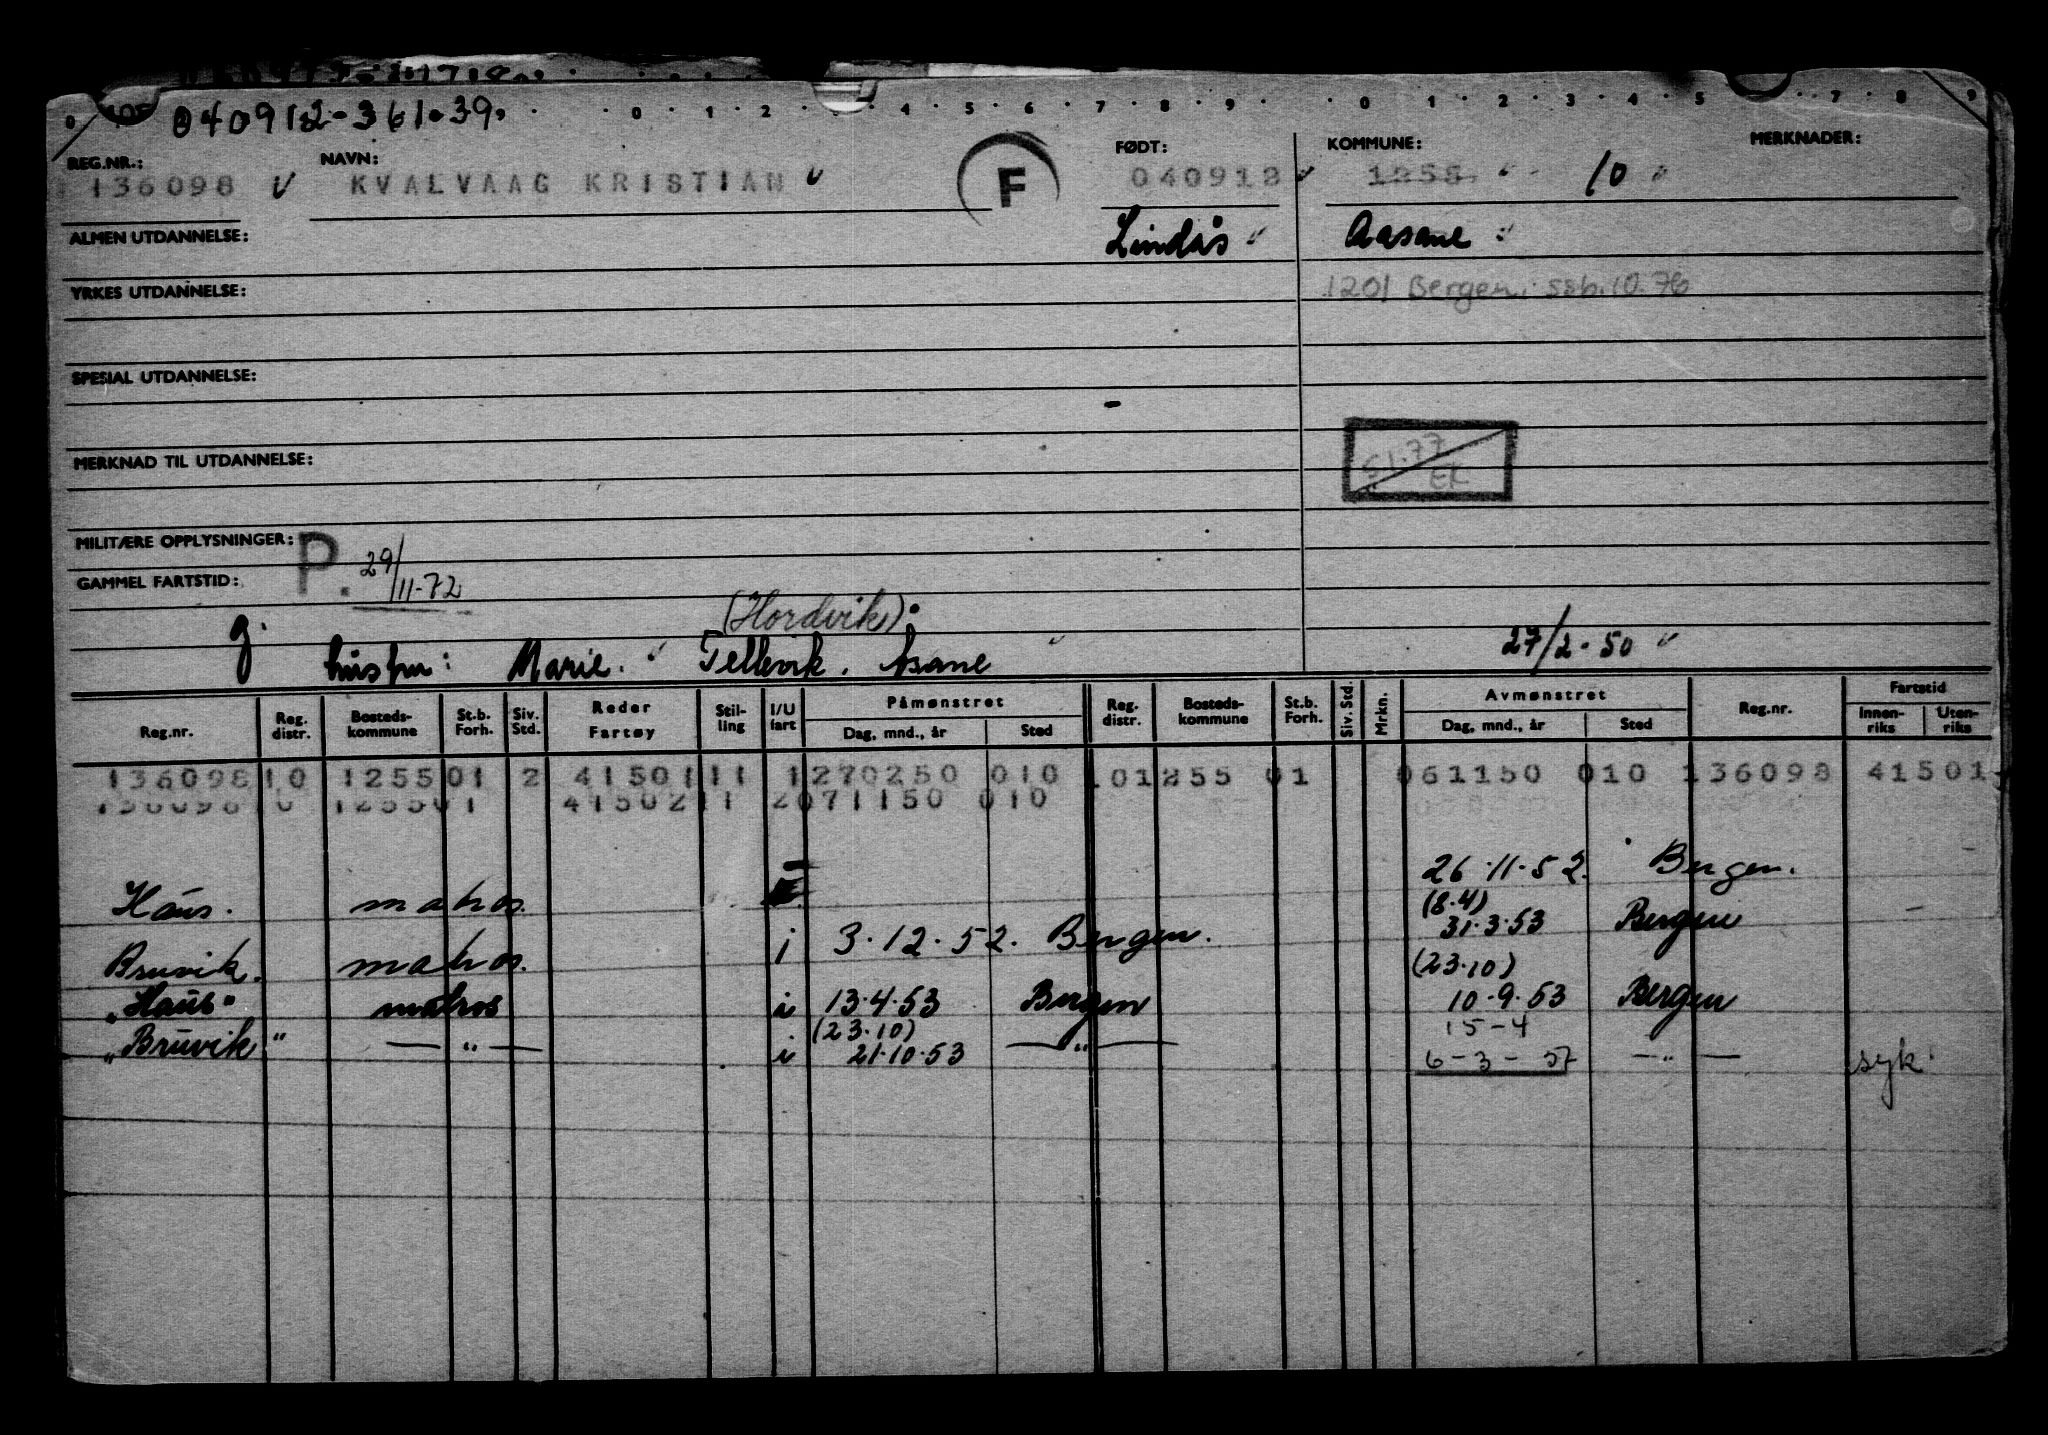 040912-361.39.
0 1 2 4 5 6 7 8 9 0 1 2 3 4 5 7 8 9
REG.NR.: NAVN: FØDT: KOMMUNE: MERKNADER:
136098 KVALVAAG KRISTIAN F 040912 1255 10
ALMEN UTDANNELSE: Lindås Aasane
YRKES UTDANNELSE: 1201 Bergen, ssb. 10.76
SPESIAL UTDANNELSE:
MERKNAD TIL UTDANNELSE: 77
MILITÆRE OPPLYSNINGER: P. 29/11-72
GAMMEL FARTSTID:
(Hordvik).
g. hustru: Marie. Tellevik. Åsane 27/2-50
Påmønstret Avmønstret Fartstid
Reg.nr. Reg. distr. Bosteds-kommune St.b. Forh. Siv. Std. Reder Fartøy Stil-ling I/U fart Dag, mnd., år Sted Reg. distr. Bosteds-kommune St.b. Forh. Siv. Std. Mrkn. Dag, mnd., år Sted Reg.nr. Innen-riks Uten-riks
136098 10 1255 01 2 41501 11 1 270250 010 10 1255 01 061150 010 136098 41501
136098 10 1255 01 41502 11 2 071150 010
Haus. matros. 26.11.52. Bergen.
(8.4)
Bruvik. matros. i 3.12.52. Bergen. 31.3.53 Bergen
(23.10)
"Haus" matros i 13.4.53 Bergen 10.9.53 Bergen
(23.10) 15-4
"Bruvik" — " — i 21.10.53 — " — 6-3-57 — " — syk.